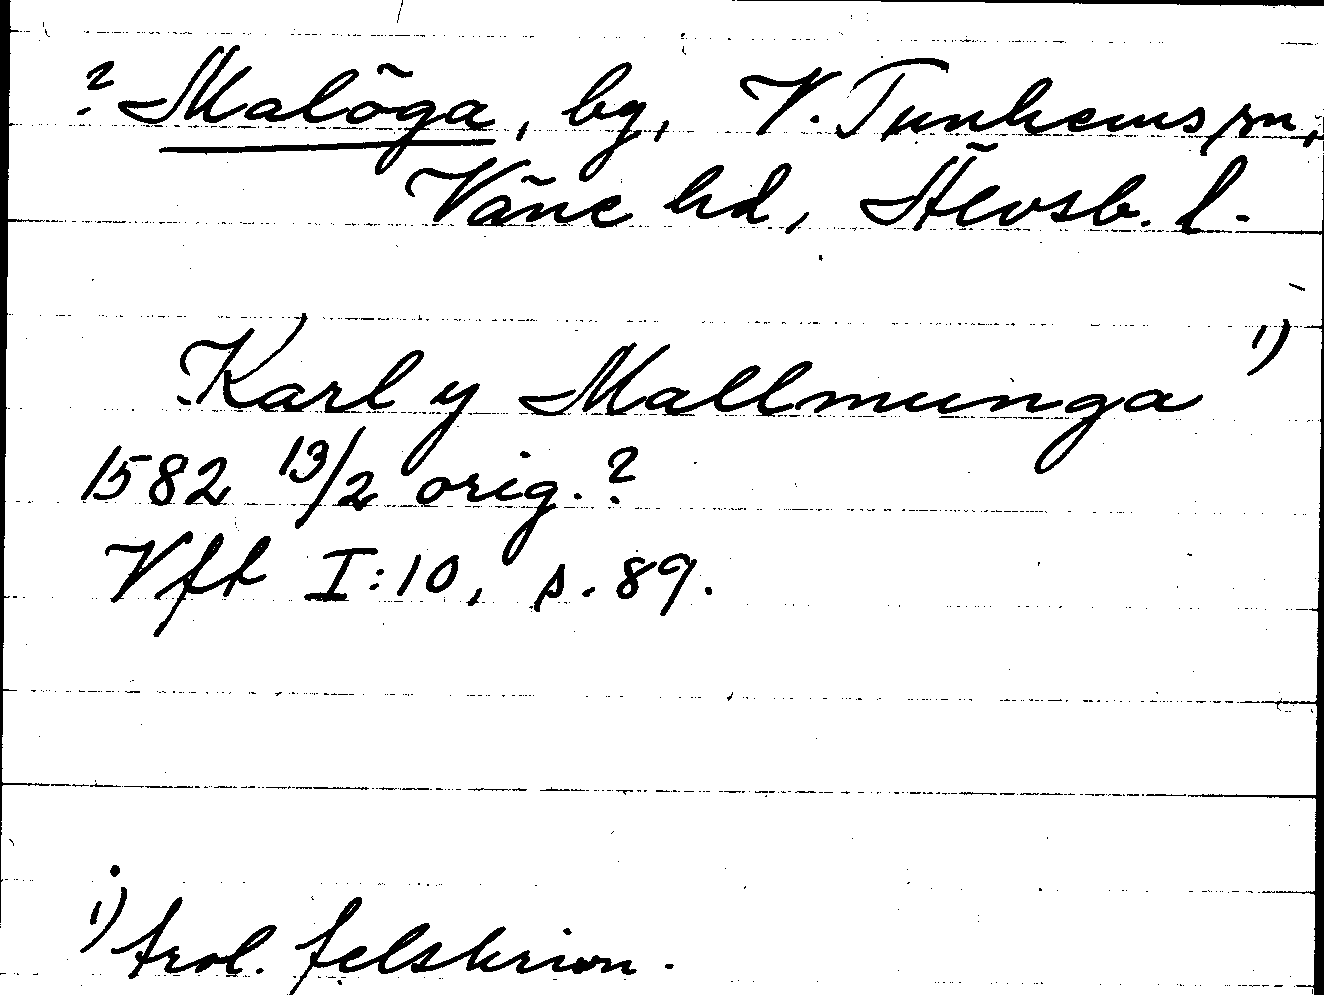 ? Malöga, by, V. Tunhems sn,
Väne hd, Älvsb. l.
Karl y Mallmunga 1)
1582 13/2 orig.?
Vft I:10, s. 89.
1) trol. felskrivn.